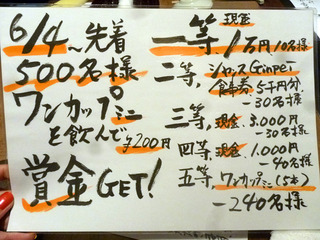 6/4~先着
500名様
ワンカップミニ
を飲んで
¥200円
賞金GET!
一等, 現金 1万円 10名様
二等, ジャッズGinpei
食事券 5千円分
-30名様
三等, 現金, 3.000円
-30名様
四等, 現金, 1.000円
-40名様
五等, ワンカップミニ(5本)
-240名様